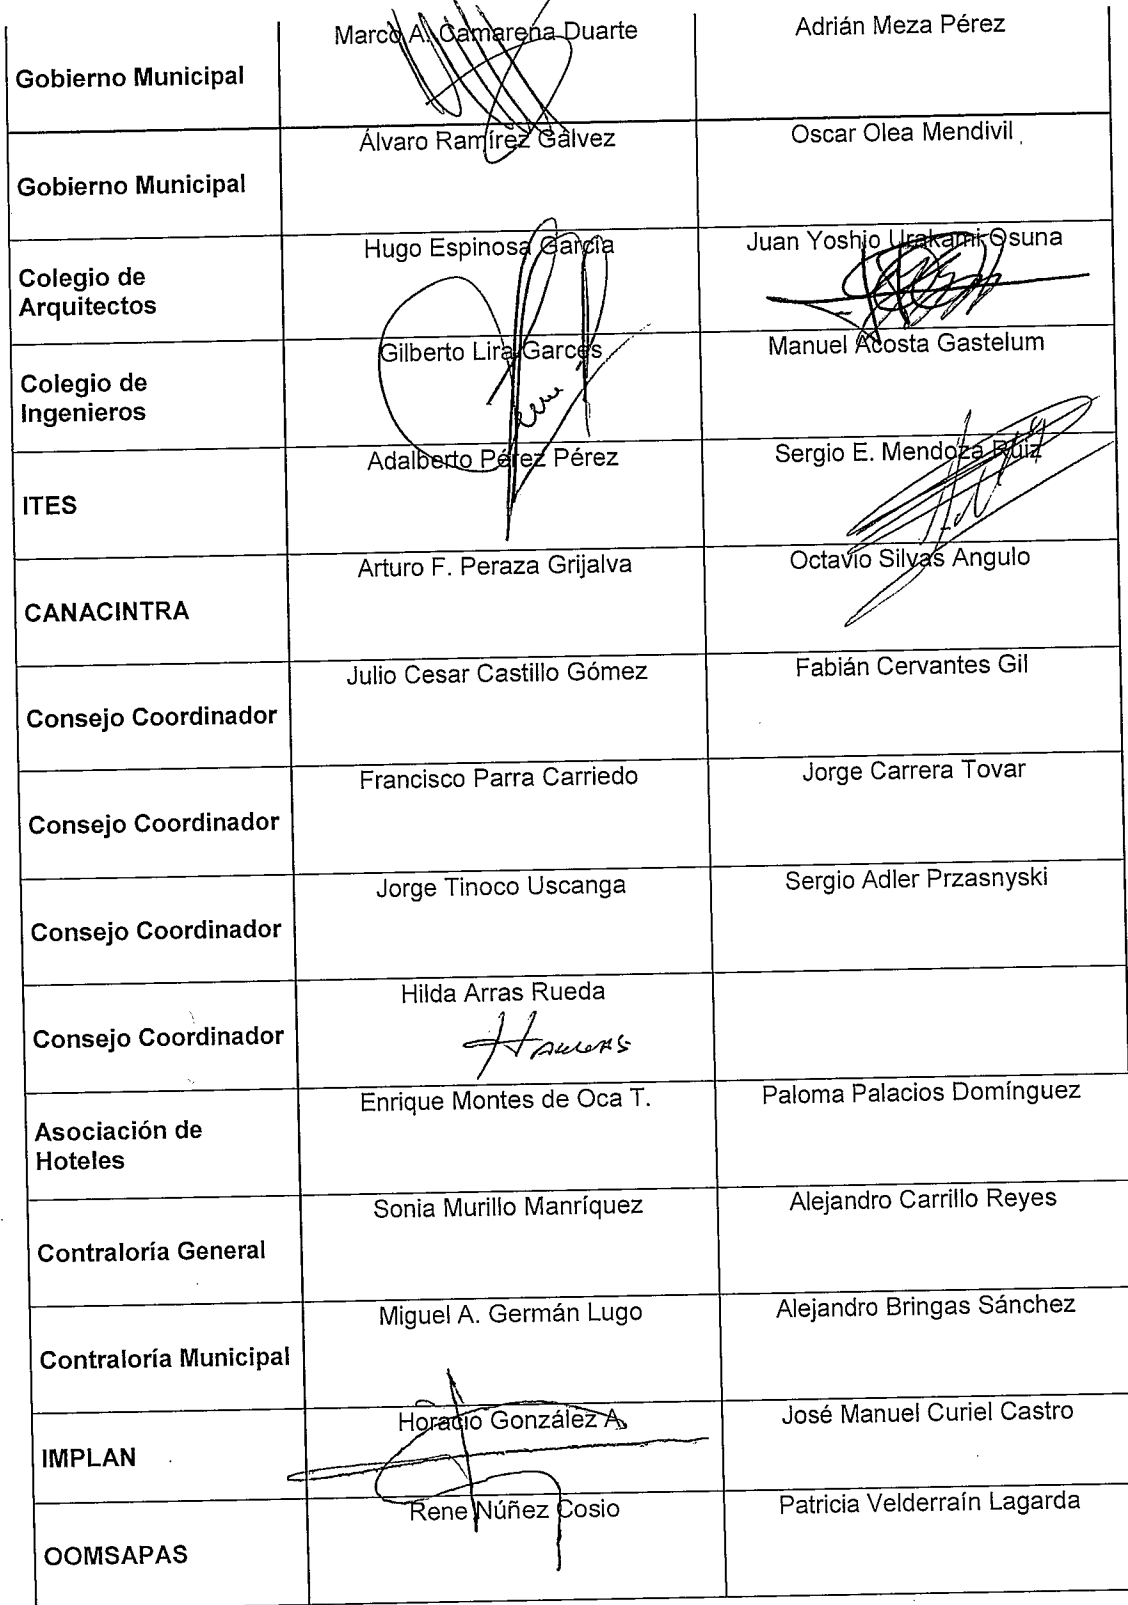 Marco A. Camarena Duarte
Adrián Meza Pérez
Gobierno Municipal
Álvaro Ramírez Gálvez
Oscar Olea Mendivil
Gobierno Municipal
Hugo Espinosa García
Juan Yoshio Urakami Osuna
Colegio de
Arquitectos
Gilberto Lira Garces
Manuel Acosta Gastelum
Colegio de
Ingenieros
Adalberto Pérez Pérez
Sergio E. Mendoza Ruiz
ITES
Arturo F. Peraza Grijalva
Octavio Silvas Angulo
CANACINTRA
Julio Cesar Castillo Gómez
Fabián Cervantes Gil
Consejo Coordinador
Francisco Parra Carriedo
Jorge Carrera Tovar
Consejo Coordinador
Jorge Tinoco Uscanga
Sergio Adler Przasnyski
Consejo Coordinador
Hilda Arras Rueda
Consejo Coordinador
Enrique Montes de Oca T.
Paloma Palacios Domínguez
Asociación de
Hoteles
Sonia Murillo Manríquez
Alejandro Carrillo Reyes
Contraloría General
Miguel A. Germán Lugo
Alejandro Bringas Sánchez
Contraloría Municipal
Horacio González A.
José Manuel Curiel Castro
IMPLAN
Rene Núñez Cosio
Patricia Velderraín Lagarda
OOMSAPAS